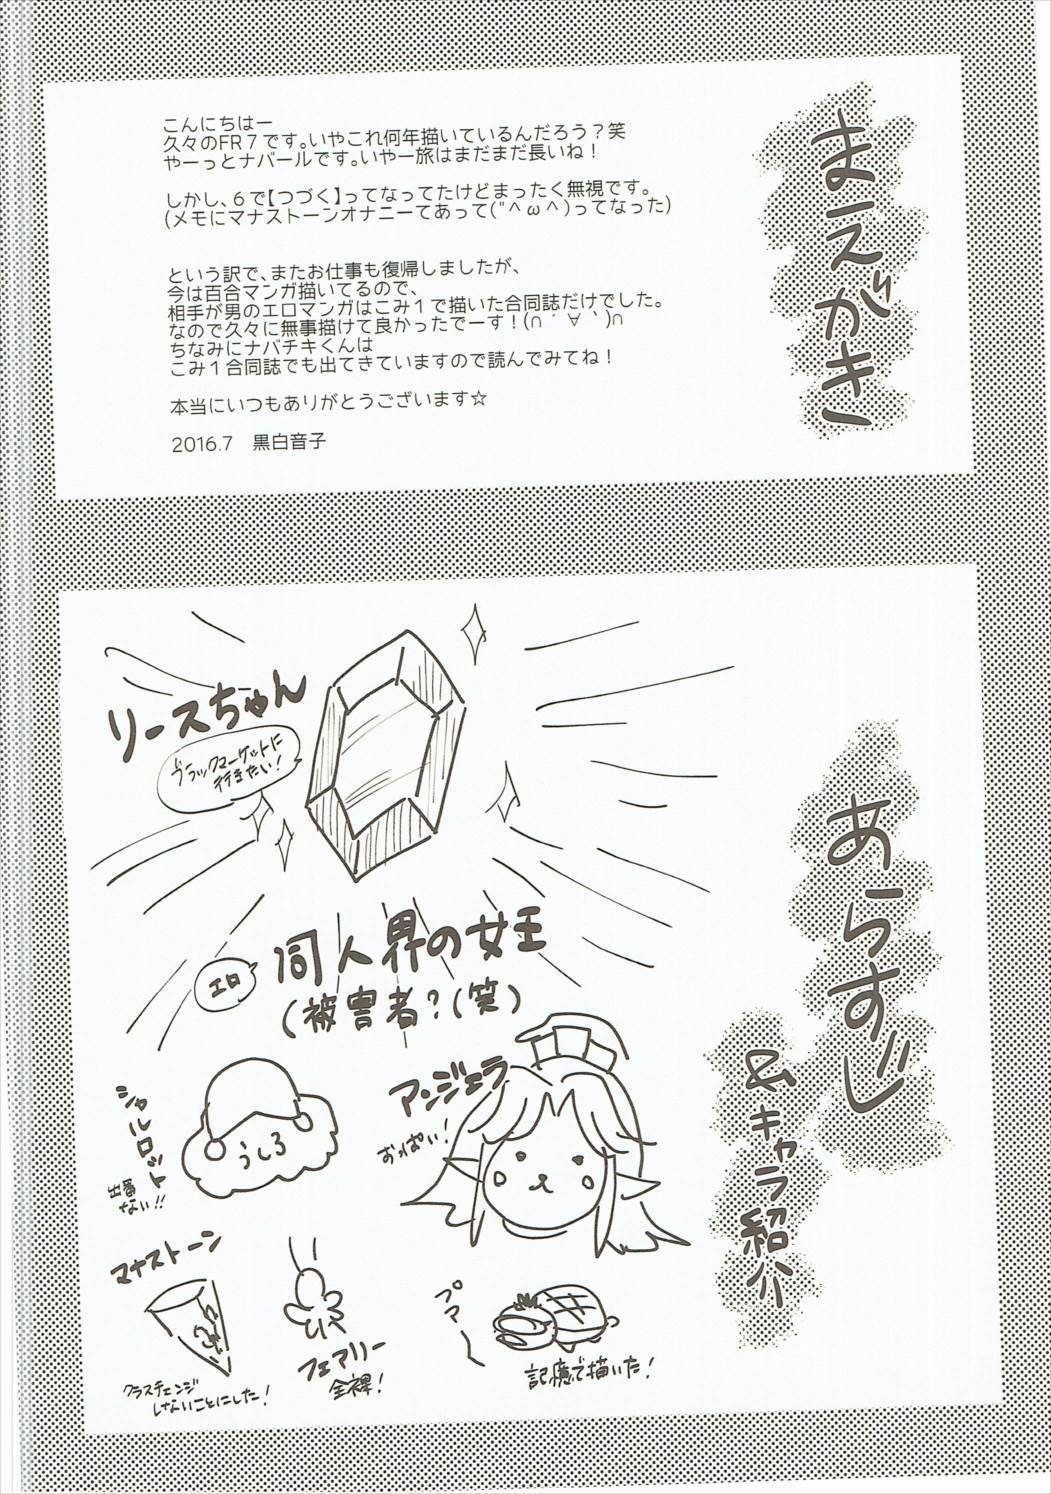 まえがき
こんにちはー
久々のFR7です。いやこれ何年描いているんだろう？笑
やーっとナバールです。いやー旅はまだまだ長いね！
しかし、6で【つづく】ってなってたけどまったく無視です。
(メモにマナストーンオナニーてあって("^ω^)ってなった)
という訳で、またお仕事も復帰しましたが、
今は百合マンガ描いてるので、
相手が男のエロマンガはこみ1で描いた合同誌だけでした。
なので久々に無事描けて良かったでーす！(∩´∀`)∩
ちなみにナバチキくんは
こみ1合同誌でも出てきていますので読んでみてね！
本当にいつもありがとうございます☆
2016.7　黒白音子
あらすじ
&キャラ紹介
リースちゃん
ブラックマーケットに
行きたい！
エロ
同人界の女王
(被害者？(笑)
アンジェラ
おっぱい！
シャルロット
うしろ
出番
ない!!
マナストーン
クラスチェンジ
しないことにした！
フェアリー
全裸！
ブマー
記憶で描いた！